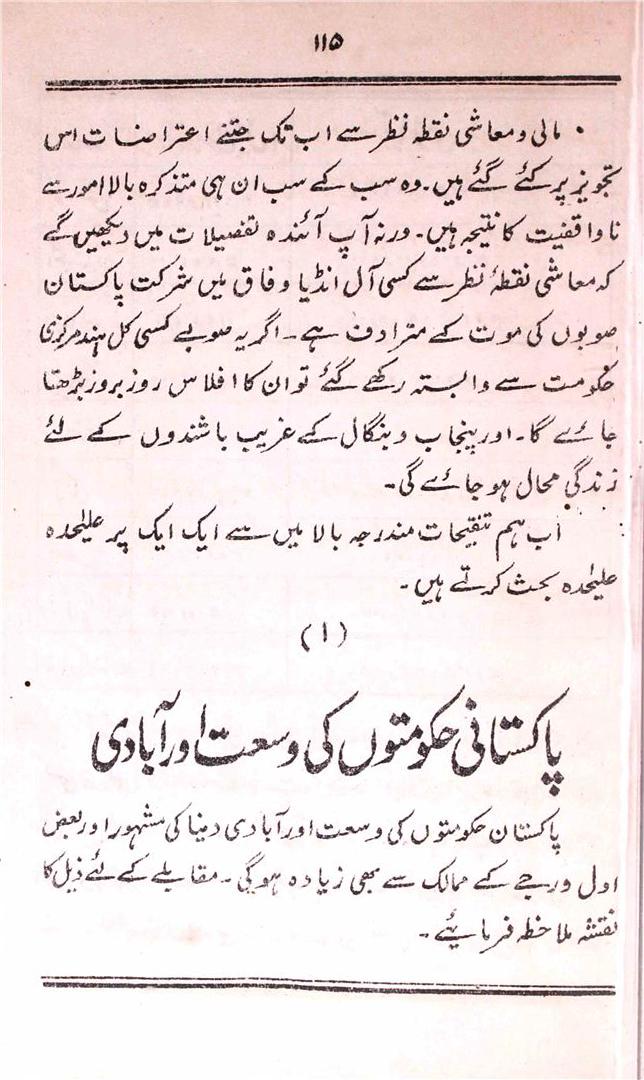 ۱۱۵
مالی و معاشی نقطہ نظر سے اب تک جتنے اعتراضات اس
تجویز پر کئے گئے ہیں۔ وہ سب کے سب ان ہی متذکرہ بالا امور سے
ناواقفیت کا نتیجہ ہیں۔ ورنہ آپ آئندہ تفصیلات میں دیکھیں گے
کہ معاشی نقطۂ نظر سے کسی آل انڈیا وفاق میں شرکت پاکستان
صوبوں کی موت کے مترادف ہے۔ اگر یہ صوبے کسی کل ہند مرکزی
حکومت سے وابستہ رکھے گئے تو ان کا افلاس روز بروز بڑھتا
جائے گا۔ اور پنجاب و بنگال کے غریب باشندوں کے لئے
زندگی محال ہو جائے گی۔
اب ہم تنقیحات مندرجہ بالا میں سے ایک ایک پر علیٰحدہ
علیٰحدہ بحث کرتے ہیں۔
(۱)
پاکستانی حکومتوں کی وسعت اور آبادی
پاکستان حکومتوں کی وسعت اور آبادی دنیا کی مشہور اور بعض
اول ورجے کے ممالک سے بھی زیادہ ہوگی۔ مقابلے کے لئے ذیل کا
نقشہ ملاخطہ فرمایئے۔